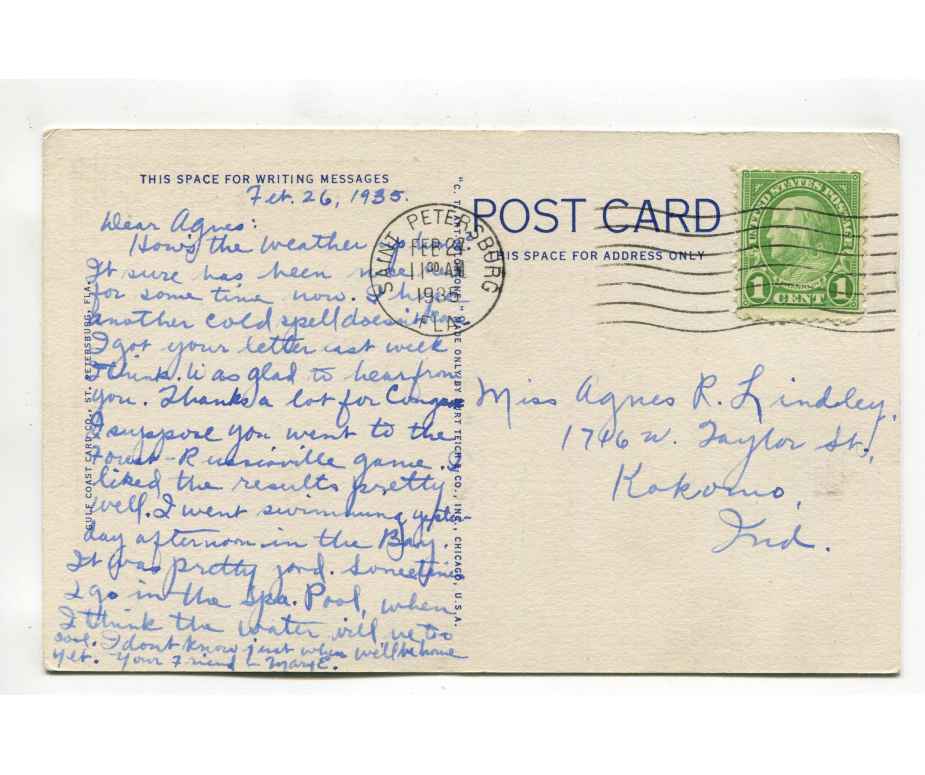 THIS SPACE FOR WRITING MESSAGES
Feb. 26, 1935.
Dear Agnes:
How's the weather
It sure has been nice
for some time now. I hope
another cold spell doesn't
I got your letter last week
I think. Was glad to hear from
you. Thanks a lot for
I suppose you went to the
Russiaville game. I
liked the results pretty
well. I went swimming yester-
day afternoon in the Bay.
It was pretty good. Sometimes
I go in the Spa. Pool, when
I think the water will be too
cool. I dont know just when we'll be home
yet. Your Friend Mary E.
GULF COAST CARD CO., ST. PETERSBURG, FLA.
MADE ONLY BY CURT TEICH & CO., INC., CHICAGO, U.S.A.
SAINT PETERSBURG
FEB 27
11 00 AM
1935
FLA
POST CARD
THIS SPACE FOR ADDRESS ONLY
UNITED STATES POSTAGE
1 CENT 1
Miss Agnes R. Lindley.
1746 W. Taylor St.,
Kokomo,
Ind.